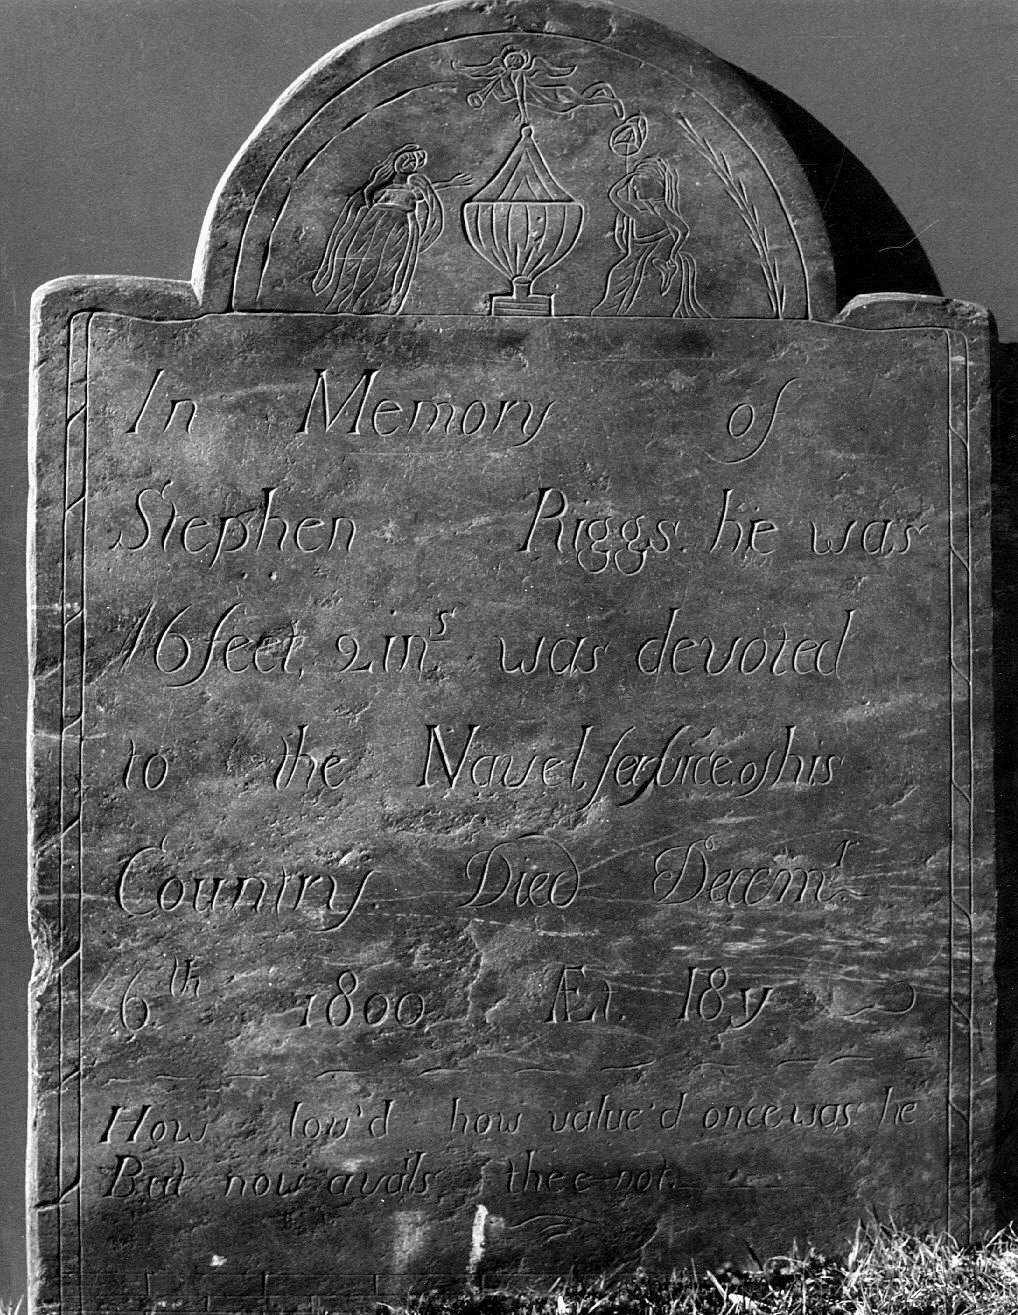 In Memory of
Stephen Riggs. he was
16 feet, 2 inˢ was devoted
to the Navel, service, of his
Country. Died Decemʳ
6.ᵗʰ 1800 Æt. 18 y
How lov'd how value'd once was he
But now avails thee not